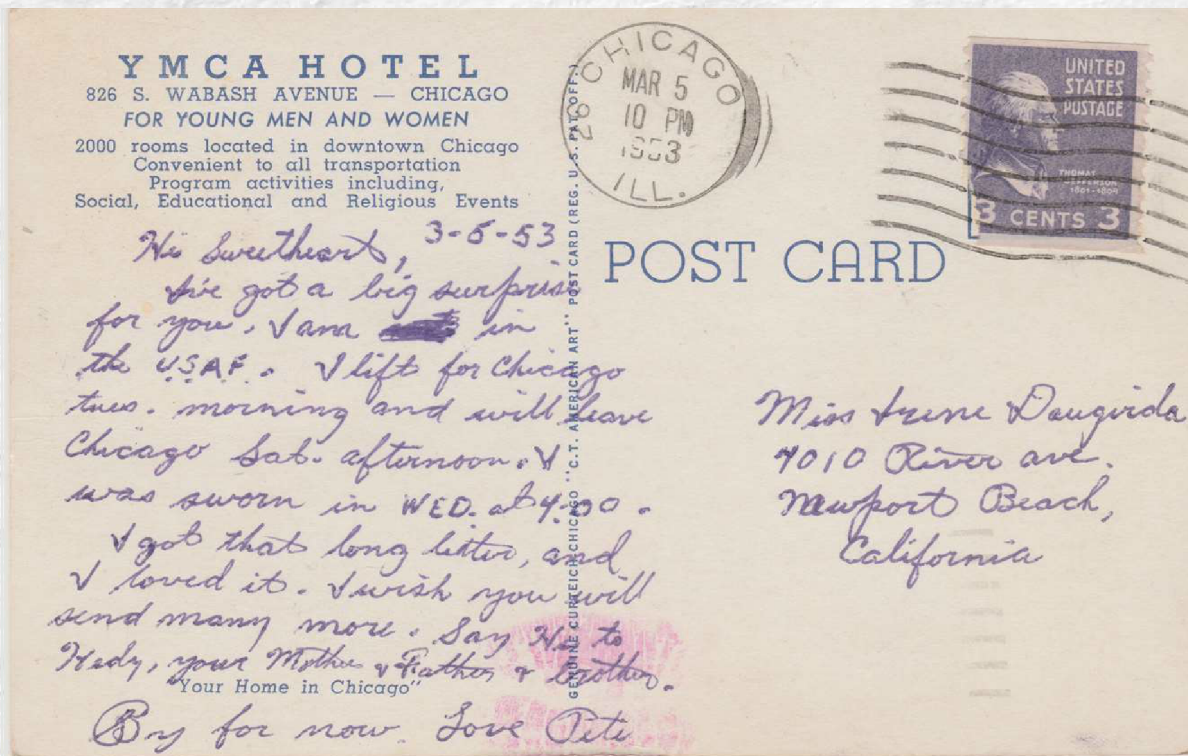 YMCA HOTEL
826 S. WABASH AVENUE — CHICAGO
FOR YOUNG MEN AND WOMEN
2000 rooms located in downtown Chicago
Convenient to all transportation
Program activities including,
Social, Educational and Religious Events
3-5-53
Hi Sweetheart,
I've got a big surprise
for you. I am in
the U.S.A.F. I left for Chicago
tues. morning and will leave
Chicago Sat. afternoon. I
was sworn in WED. at 4:00.
I got that long letter, and
I loved it. I wish you will
send many more. Say Hi to
Hedy, your Mother & Father & brother.
"Your Home in Chicago"
By for now. Love Pete
GENUINE CURTEICH-CHICAGO "C.T. AMERICAN ART" POST CARD (REG. U.S. PAT. OFF.)
CHICAGO
28
MAR 5
10 PM
1953
ILL.
UNITED
STATES
POSTAGE
THOMAS
JEFFERSON
1801-1809
3 CENTS 3
POST CARD
Miss Irene Daugirda
4010 River ave.
Newport Beach,
California